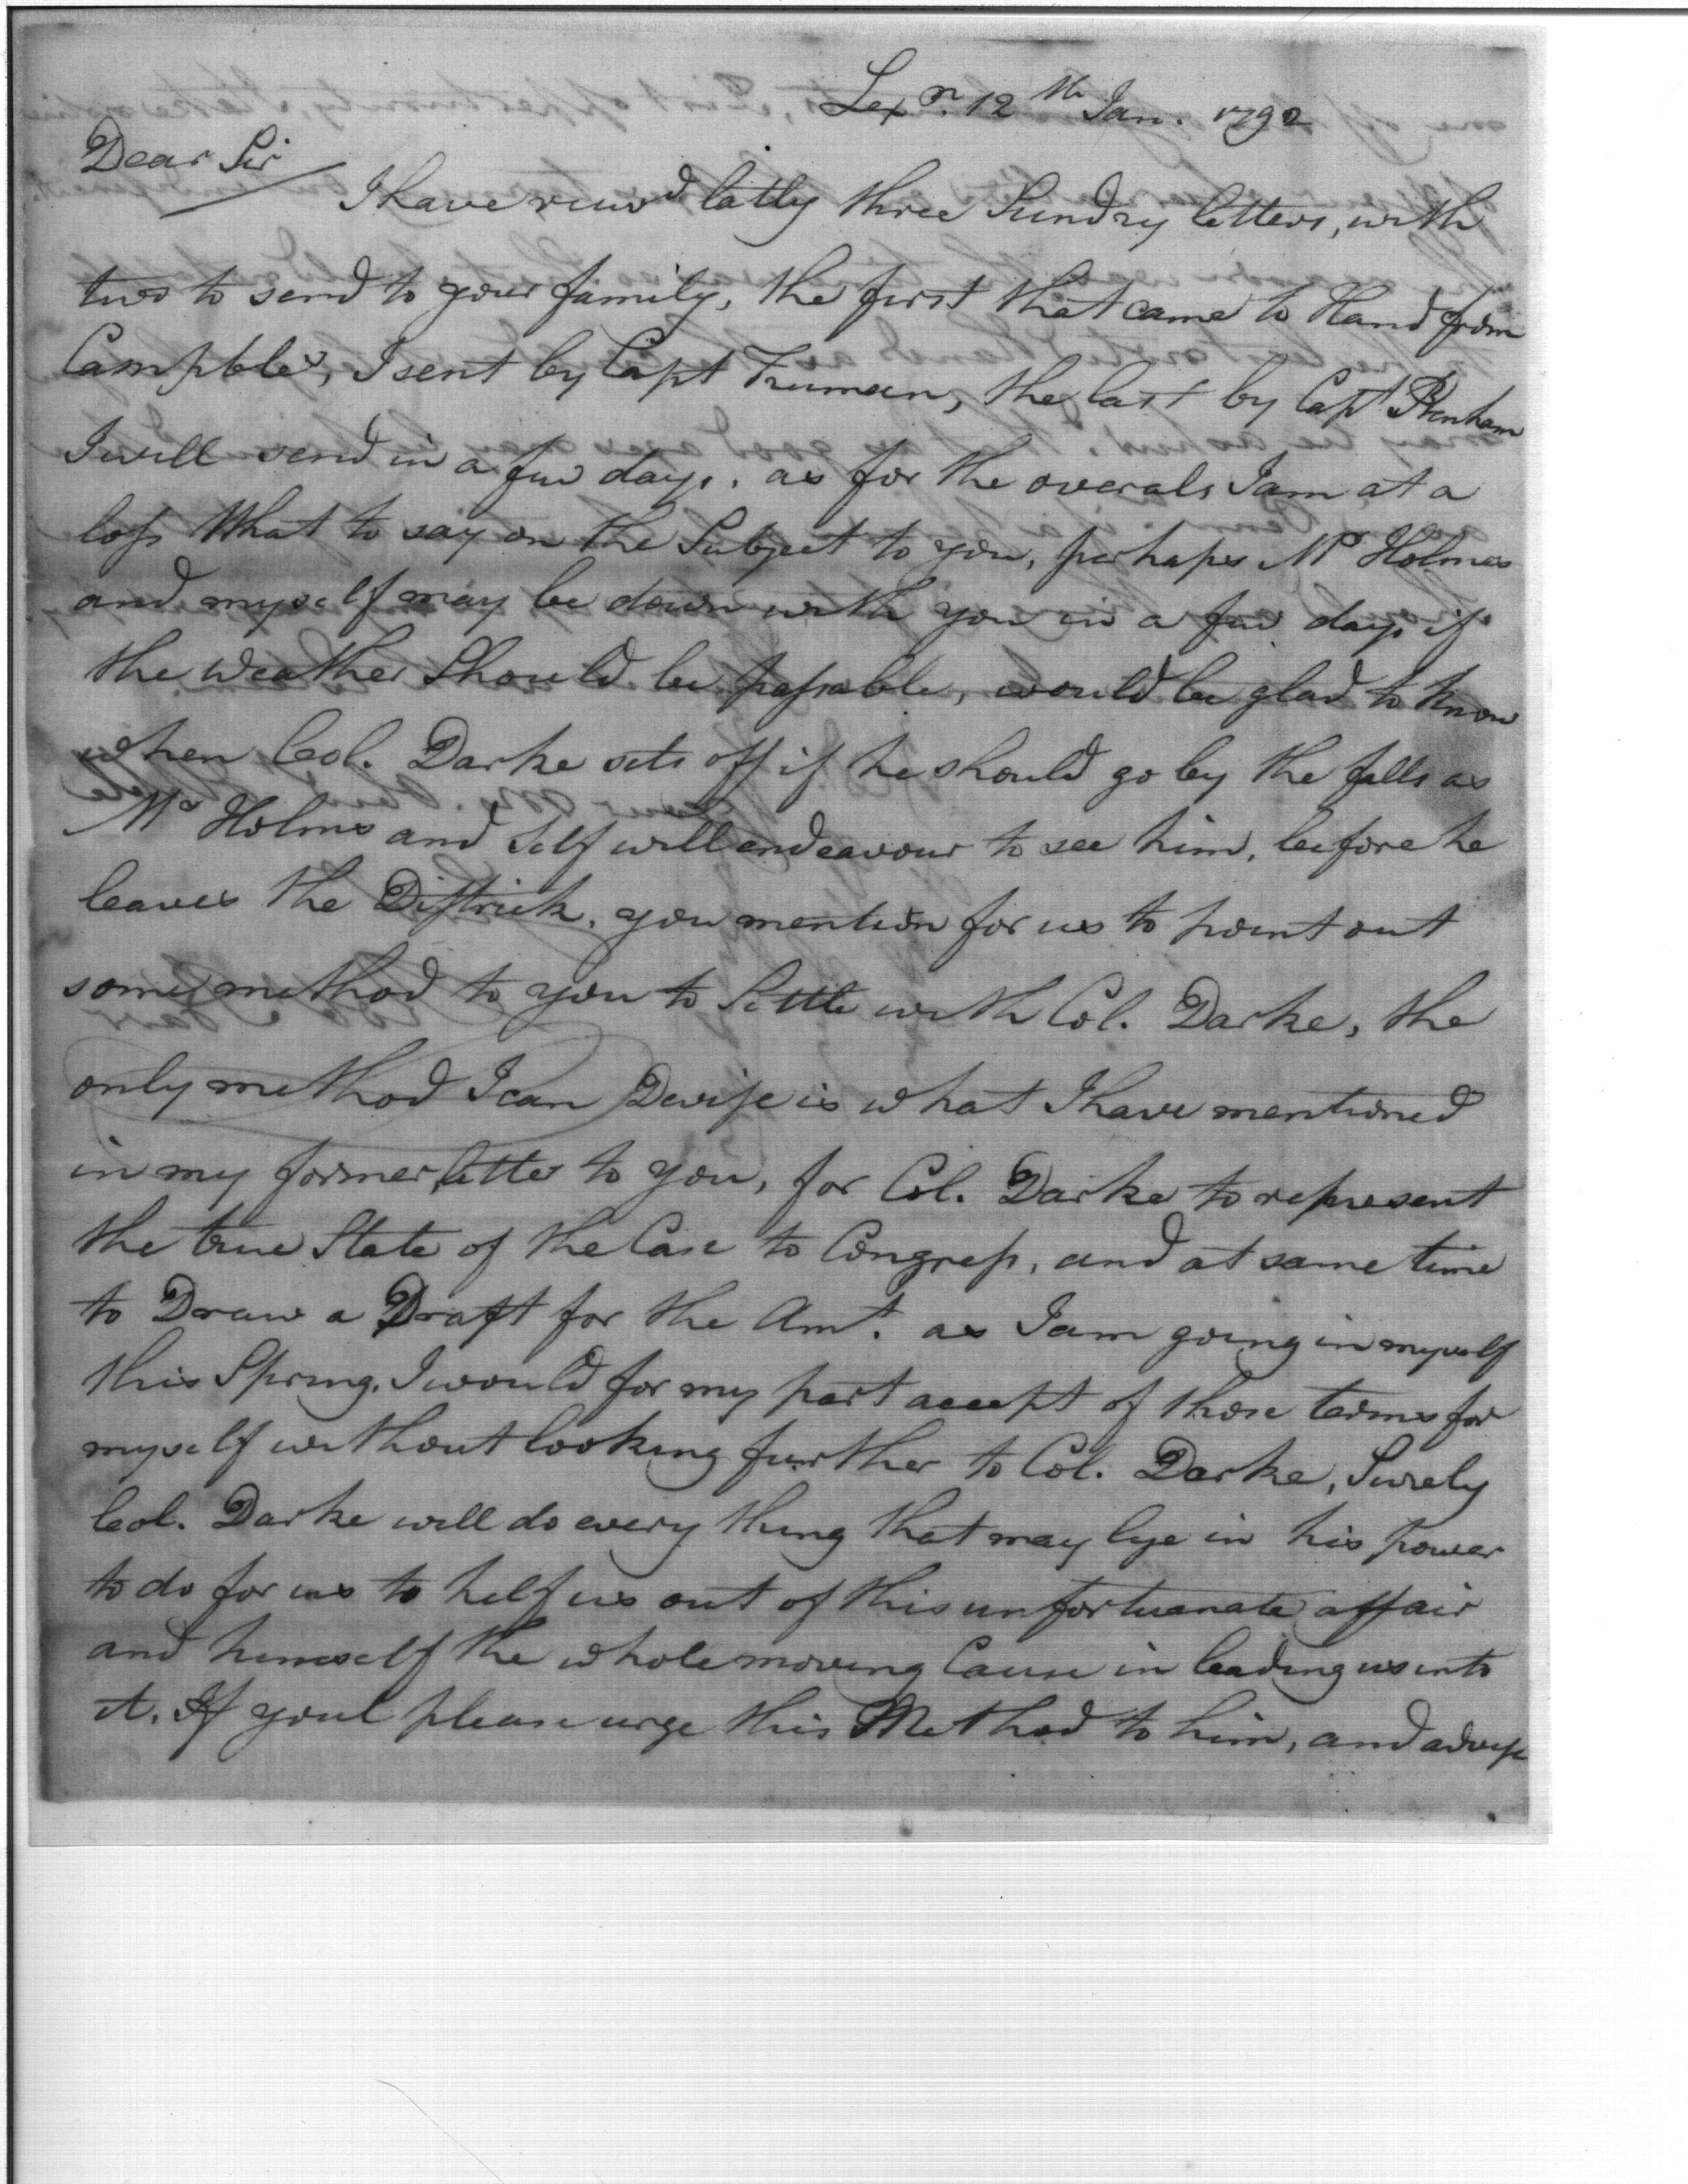 Lexn. 12th Jan. 1792
Dear Sir
I have receivd latly three Sundry letters, with
two to send to your family, the first that came to Hand from
Campbles, I sent by Capt Truman, the last by Capt Benham
I will send in a few days. as for the overals I am at a
loss What to say on the Subject to you, perhaps Mr Holmes
and myself may be down with you in a few days if
the Weather Should be passable, would be glad to know
when Col. Darke sets off if he should go by the falls as
Mr Holms and Self will endeavour to see him, before he
leaves the Districk. you mention for us to point out
some method to you to Settle with Col. Darke, the
only method I can Devise is what I have mentioned
in my former letter to you, for Col. Darke to represent
the true State of the Case to Congress, and at same time
to Draw a Draft for the Amt. as I am going in myself
this Spring. I would for my part accept of those terms for
myself without looking further to Col. Darke, Surely
Col. Darke will do every thing that may lye in his power
to do for us to help us out of this unfortuanate affair
and himself the whole moving Cause in leading us into
it. If youl please urge this Method to him, and advise